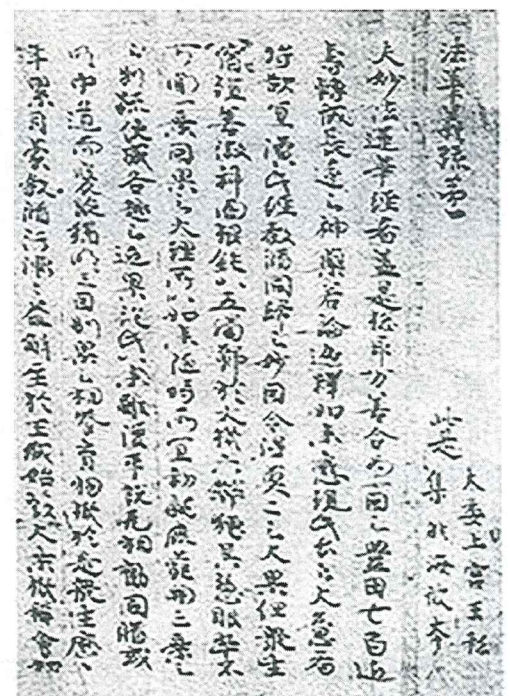 法華義疏第一
大委上宮王私
此是 集非海彼本
夫妙法蓮華経者蓋是惣取万善合為一因之豊田七百近
壽轉成長遠之神藥若論迦釋如来應現此土之大意者
将欲宜演此経教脩同歸之妙因令得莫二之大果但衆生
宿殖善微神闇根鈍以五濁鄣於大機六弊掩其慧眼卒不
可聞一乗因果之大理所以如来随時所宜初就鹿苑開三乗之
別疏使感各趣之近果従此以来雖復平説无相勸同脩或
明中道而褒貶猶明三因別果之相養育物機於是衆生歴
年累月蒙教脩行漸々益解至於王城始發大乗機稱會如